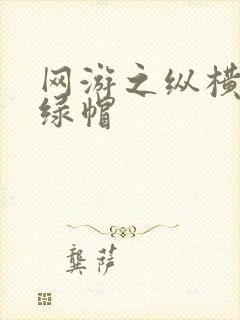 网游之纵横
绿帽
龚萨